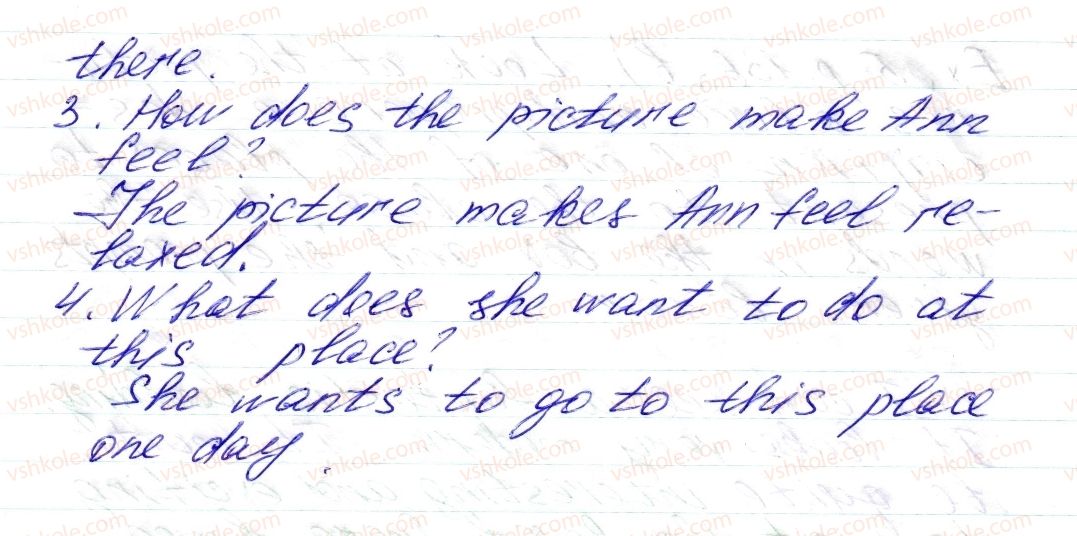 there.
3. How does the picture make Ann
feel?
– The picture makes Ann feel re-
laxed.
4. What does she want to do at
this place?
She wants to go to this place
one day.